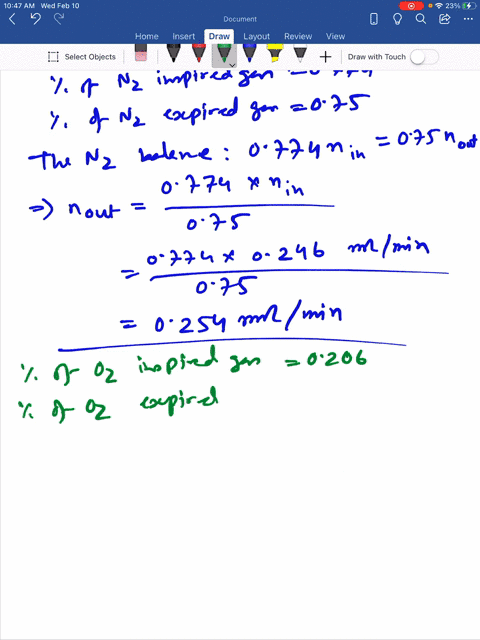 10:47 AM Wed Feb 10
23%
Document
Home Insert Draw Layout Review View
Select Objects
Draw with Touch
% of N2 inspired gas = 0.774
% of N2 expired gas = 0.75
The N2 balance : 0.774 nin = 0.75 nout
⇒ nout = 0.774 × nin
0.75
= 0.774 × 0.246 mol/min
0.75
= 0.254 mol/min
% of O2 inspired gas = 0.206
% of O2 expired